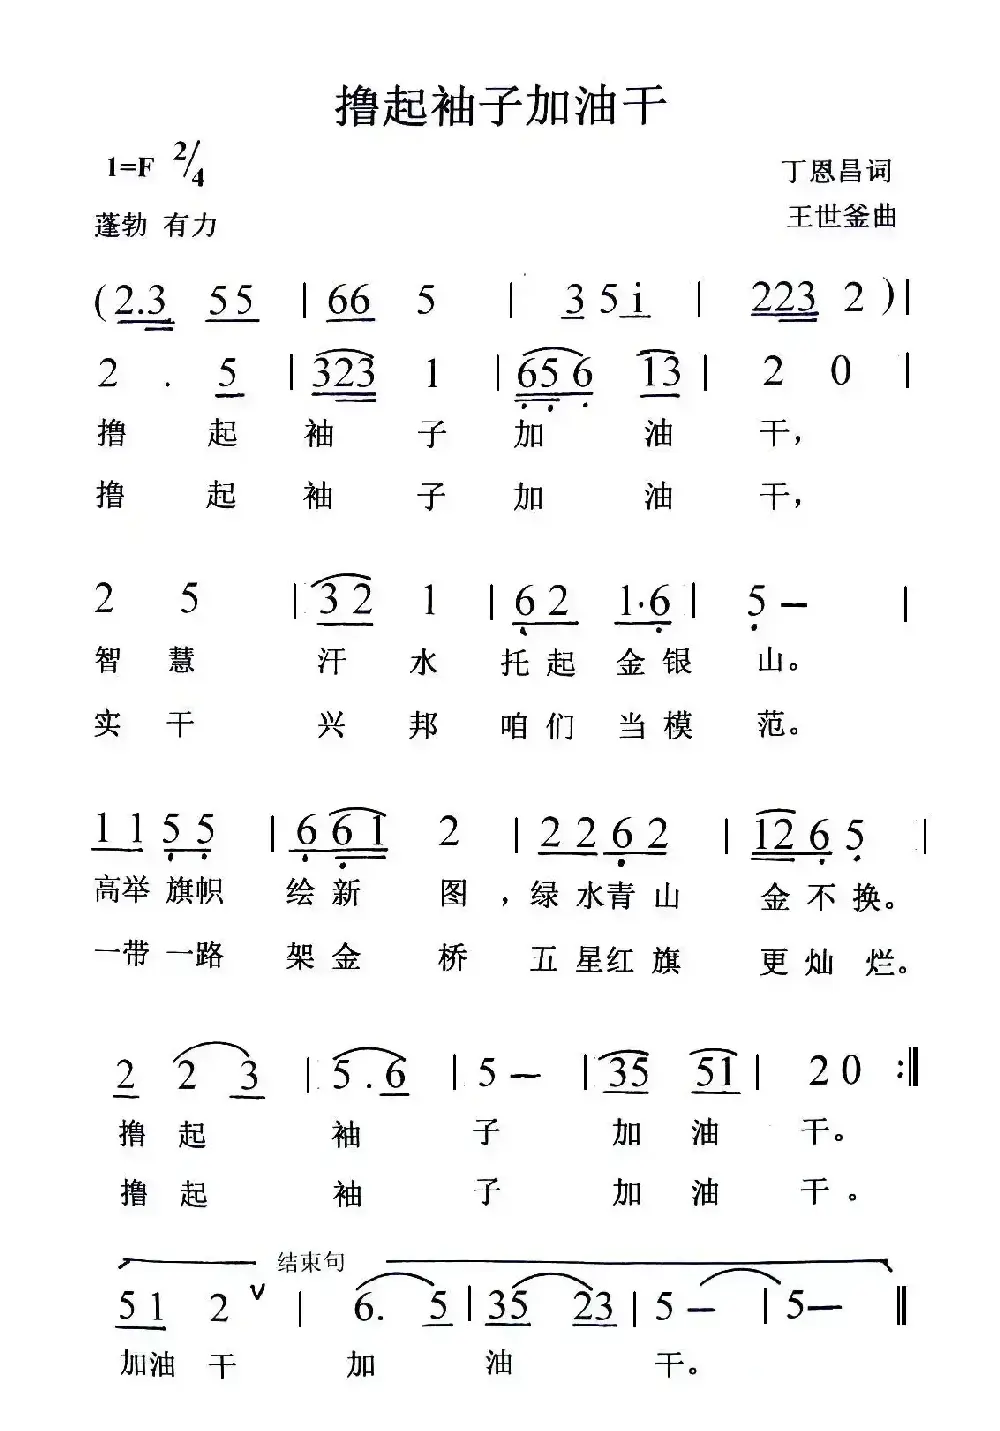 撸起袖子加油干
1=F 2/4
丁恩昌词
蓬勃 有力
王世釜曲
(2.3 55 | 66 5 | 35i | 223 2 )|
2 . 5 | 323 1 | 656 13 | 2 0 |
撸 起 袖 子 加 油 干，
撸 起 袖 子 加 油 干，
2 5 | 32 1 | 62 1·6 | 5 – |
智 慧 汗 水 托 起 金 银 山。
实 干 兴 邦 咱 们 当 模 范。
11 55 | 661 2 | 2262 | 1265 |
高举 旗帜 绘 新 图 ，绿 水青 山 金 不 换。
一带 一路 架 金 桥 五 星红 旗 更 灿 烂。
2 2 3 | 5 . 6 | 5 – | 35 51 | 20 :||
撸 起 袖 子 加 油 干。
撸 起 袖 子 加 油 干。
结束句
51 2 ∨ | 6. 5 | 35 23 | 5 – | 5 – ||
加油 干 加 油 干。